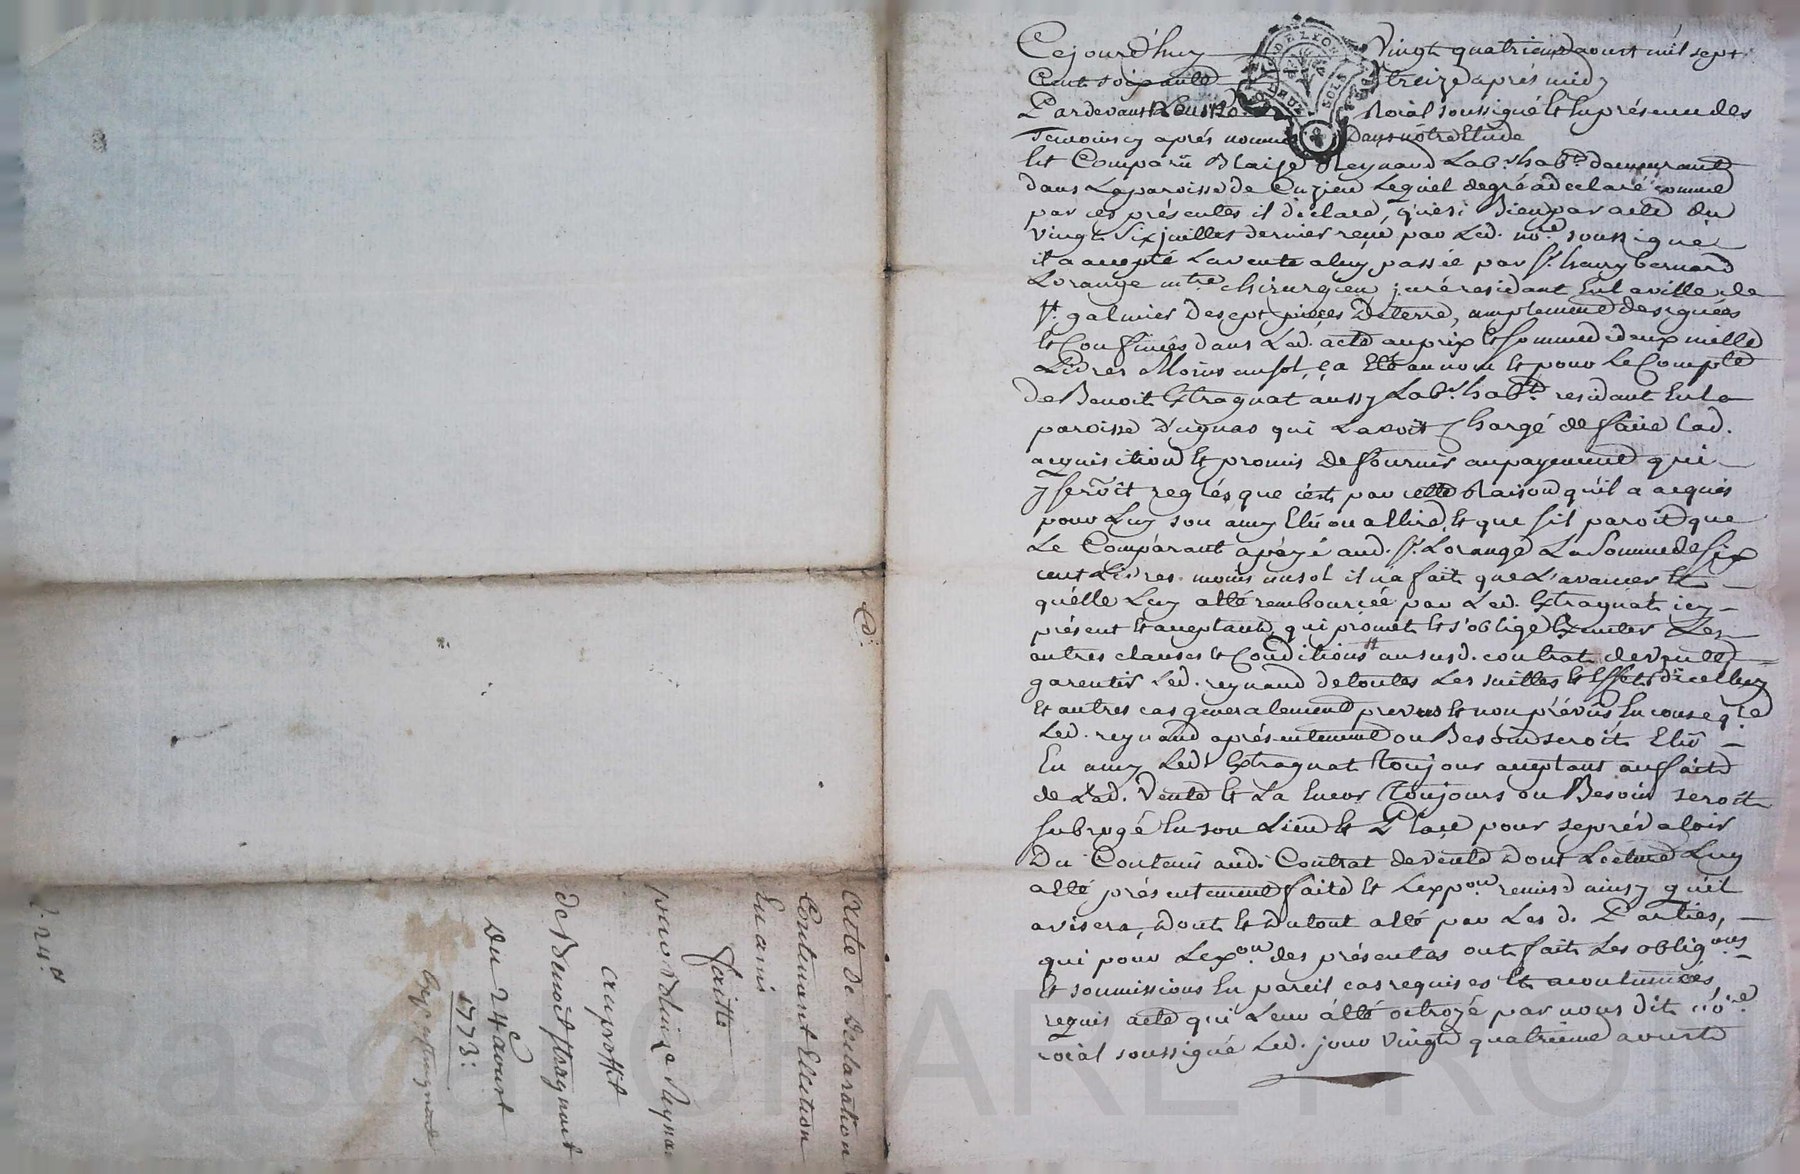 Cejourd'huy vingt quatrieme aoust mil sept
Cent soixante treize après midy
Pardevant Le no.re Roial soussigné Et En présence des
Temoins cy aprés nommés Dans nôtre Etude
Est Comparû Blaise Reynaud Lab.r hab.t demeurant
dans La paroisse de Cuzieu Lequel de gré a declaré comme
par ces présentes il declare, que si Bien par acte du
vingt Six juillet dernier reçu par Led. no.re soussigné
il a accepté La vente a luy passée par S.r henry bernard
Lorange m.tre chirurgien juré residant En la ville de
S.t galmier de sept pieces De terre, amplement designées
Et Confinées dans Led. acte au prix Et Somme de deux mille
Livres Moins un sol, ça Eté au nom Et pour Le Compte
de Benoit Extragnat aussy Lab.r hab.t residant En la
paroisse D'ugnas qui L'avoit Chargé de faire lad.
acquisition Et promis de fournir au payement qui
y seroit reglés, que c'est par cette Raison qu'il a acquis
pour Luy son amy Elû ou a Elire, Et que s'il paroit que
Le Comparant a payé aud. S.r Lorange La Somme de Six
cent Livres moins un sol il n'a fait que L'avancer Et
qu'elle Luy a Eté remboursée par Led. Extragnat icy
présent Et acceptant, qui promet Et s'oblige Executer Les
autres clauses Et Conditions au susd. contrat de vente
garentir Led. reynaud de toutes Les suittes Et Effets d'icelluy
Et autres cas generalement prevus Et non prévûs En conseq.ce
Led. reynaud a présentement ou Besoin seroit Elû
En amy Led. Extragnat toujour acceptant au fait
de Lad. Vente Et La Encor toujours ou Besoin seroit
subrogé En son Lieu Et Place pour se prévaloir
Du Contenu aud. Contrat de vente Dont Lecture Luy
a Eté présentement faite Et L'exp.on remise ainsy qu'il
avisera, Dont Et Du tout a Eté par Les d. Parties,
qui pour L'ex.on des présentes ont fait Les oblig.ons
Et soumissions En pareil cas requises Et acoutumées,
requis acte qui Leur a Eté octroyé par nous dit no.re
roial soussigné Led. jour vingt quatrieme avust
GEN. DE LYON
DEUX SOLS
Ed.
Acte de Declaration
Contenant Election
En amis
faitte
par Blaize Reyna
au proffit
de Benoit Estragnat
Du 24.e aoust
1773.